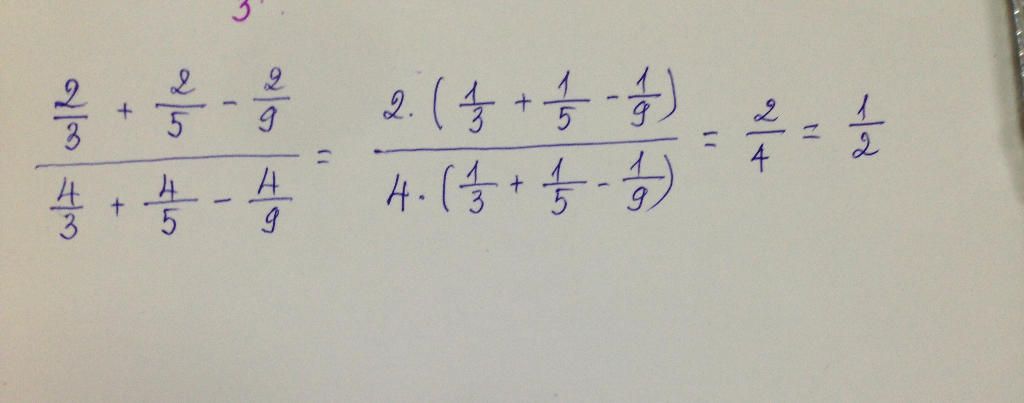 3
2/3 + 2/5 - 2/9 / 4/3 + 4/5 - 4/9 = 2.(1/3 + 1/5 - 1/9) / 4.(1/3 + 1/5 - 1/9) = 2/4 = 1/2